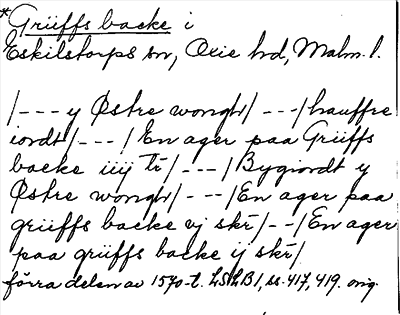 *Grüffs backe i
Eskilstorps sn, Oxie hd, Malm. l.
/---y Østre wongh/---/hauffre
iordt/---/En ager paa Grüffs
backe iiij tr̄/---/Bygiordt y
Østre wongh/---/En ager paa
grüffs backe vj skr̄/--/En ager
paa grüffs backe ij skr̄/
förra delen av 1570-t. LSLB1, ss. 417, 419. orig.